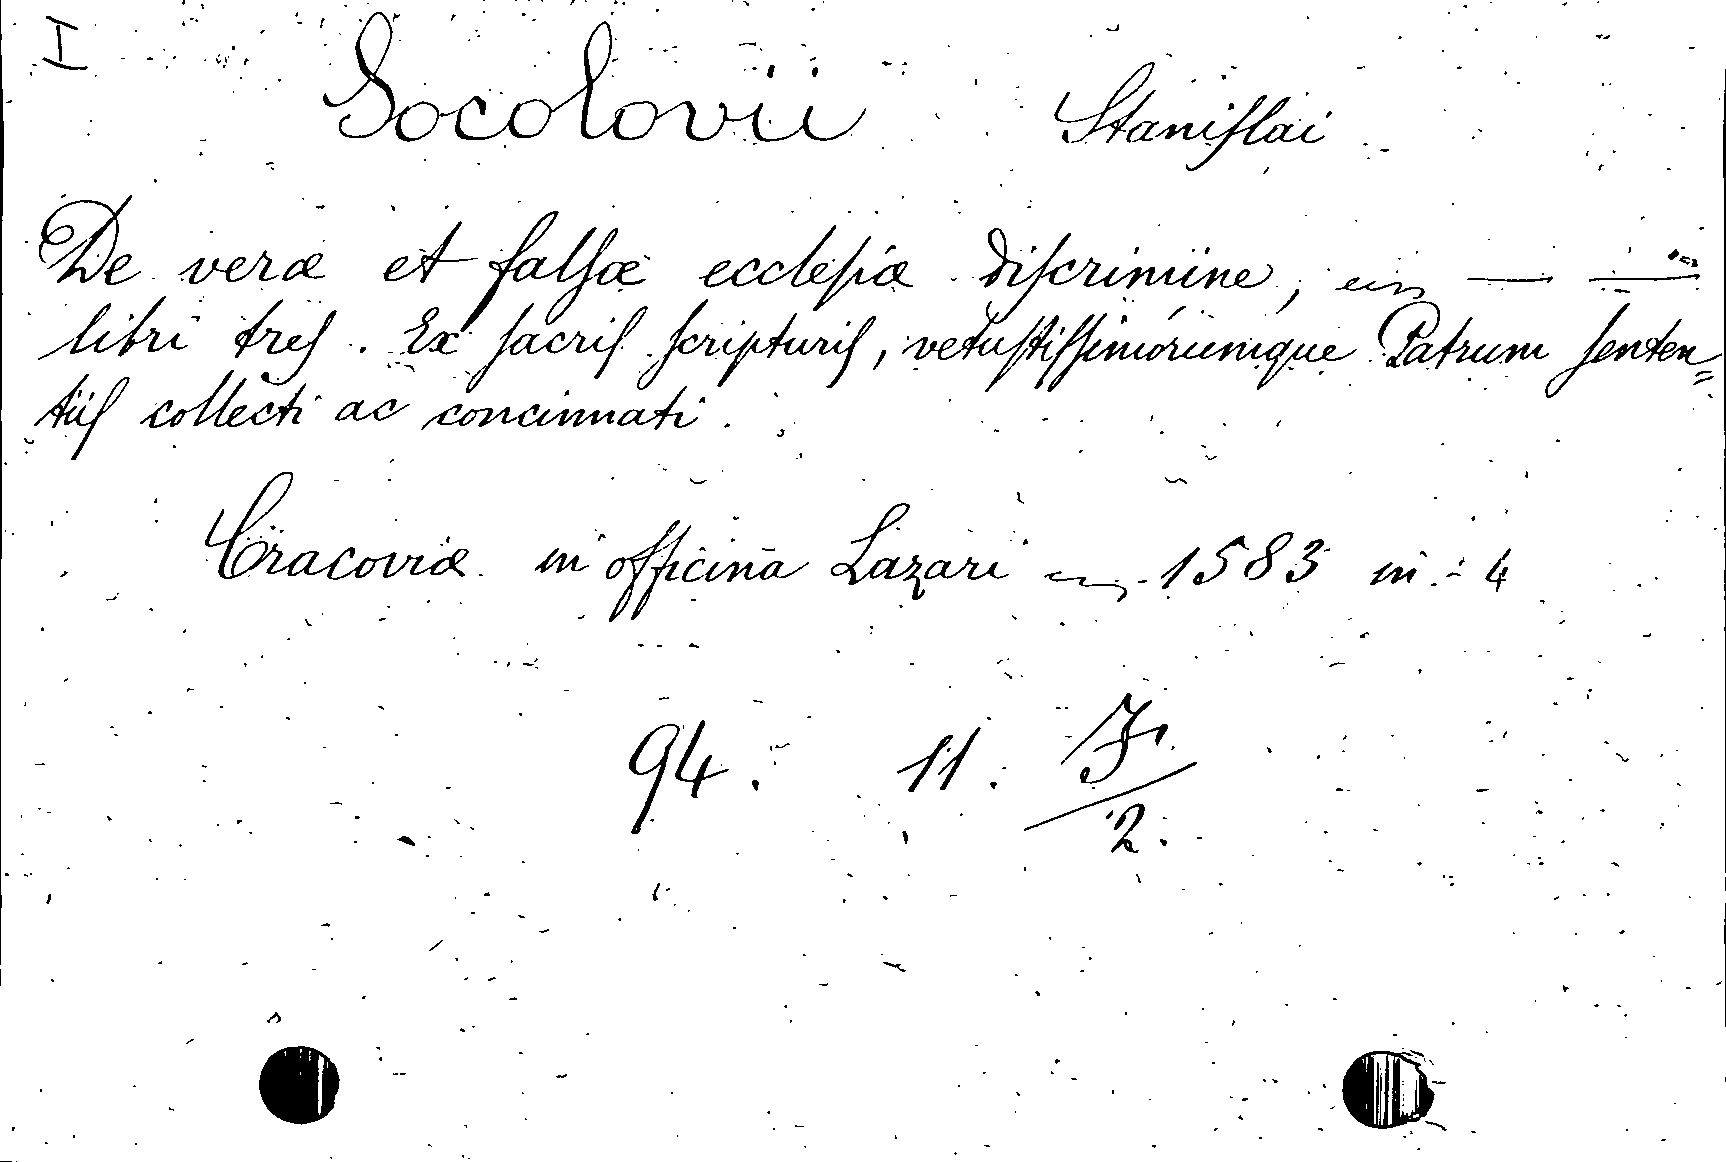 I
Socolovii Staniſlai
De veræ et falſæ eccleſiæ diſcrimine,
libri treſ. Ex ſacriſ ſcripturiſ, vetuſtiſſimorumque Patrum ſenten=
tiiſ collecti ac concinnati.
Cracoviæ in officina Lazari 1583 in-4
94. 11. F
2.